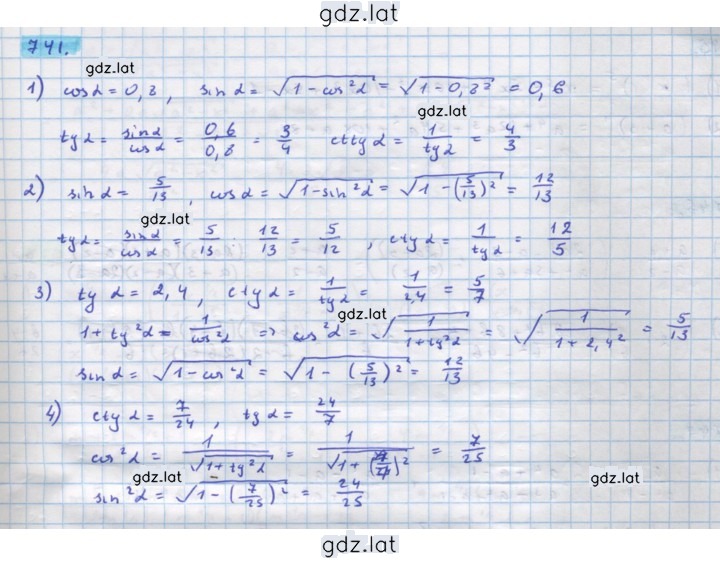 gdz.lat
741.
gdz.lat
1) cosα = 0,8, sinα = √(1-cos²α) = √(1-0,8²) = 0,6
gdz.lat
tgα = sinα/cosα = 0,6/0,8 = 3/4 cttgα = 1/tgα = 4/3
2) sinα = 5/13, cosα = √(1-sin²α) = √(1-(5/13)²) = 12/13
gdz.lat
tgα = sinα/cosα = 5/13 · 12/13 = 5/12, ctgα = 1/tgα = 12/5
3) tgα = 2,4, ctgα = 1/tgα = 1/2,4 = 5/7
gdz.lat
1+tg²α = 1/cos²α => cos²α = √(1/(1+tg²α)) = √(1/(1+2,4²)) = 5/13
sinα = √(1-cos²α) = √(1-(5/13)²) = 12/13
4) ctgα = 7/24, tgα = 24/7
cos²α = 1/√(1+tg²α) = 1/√(1+( )²) = 7/25
gdz.lat
gdz.lat
sin²α = √(1-(7/25)²) = 24/25
gdz.lat